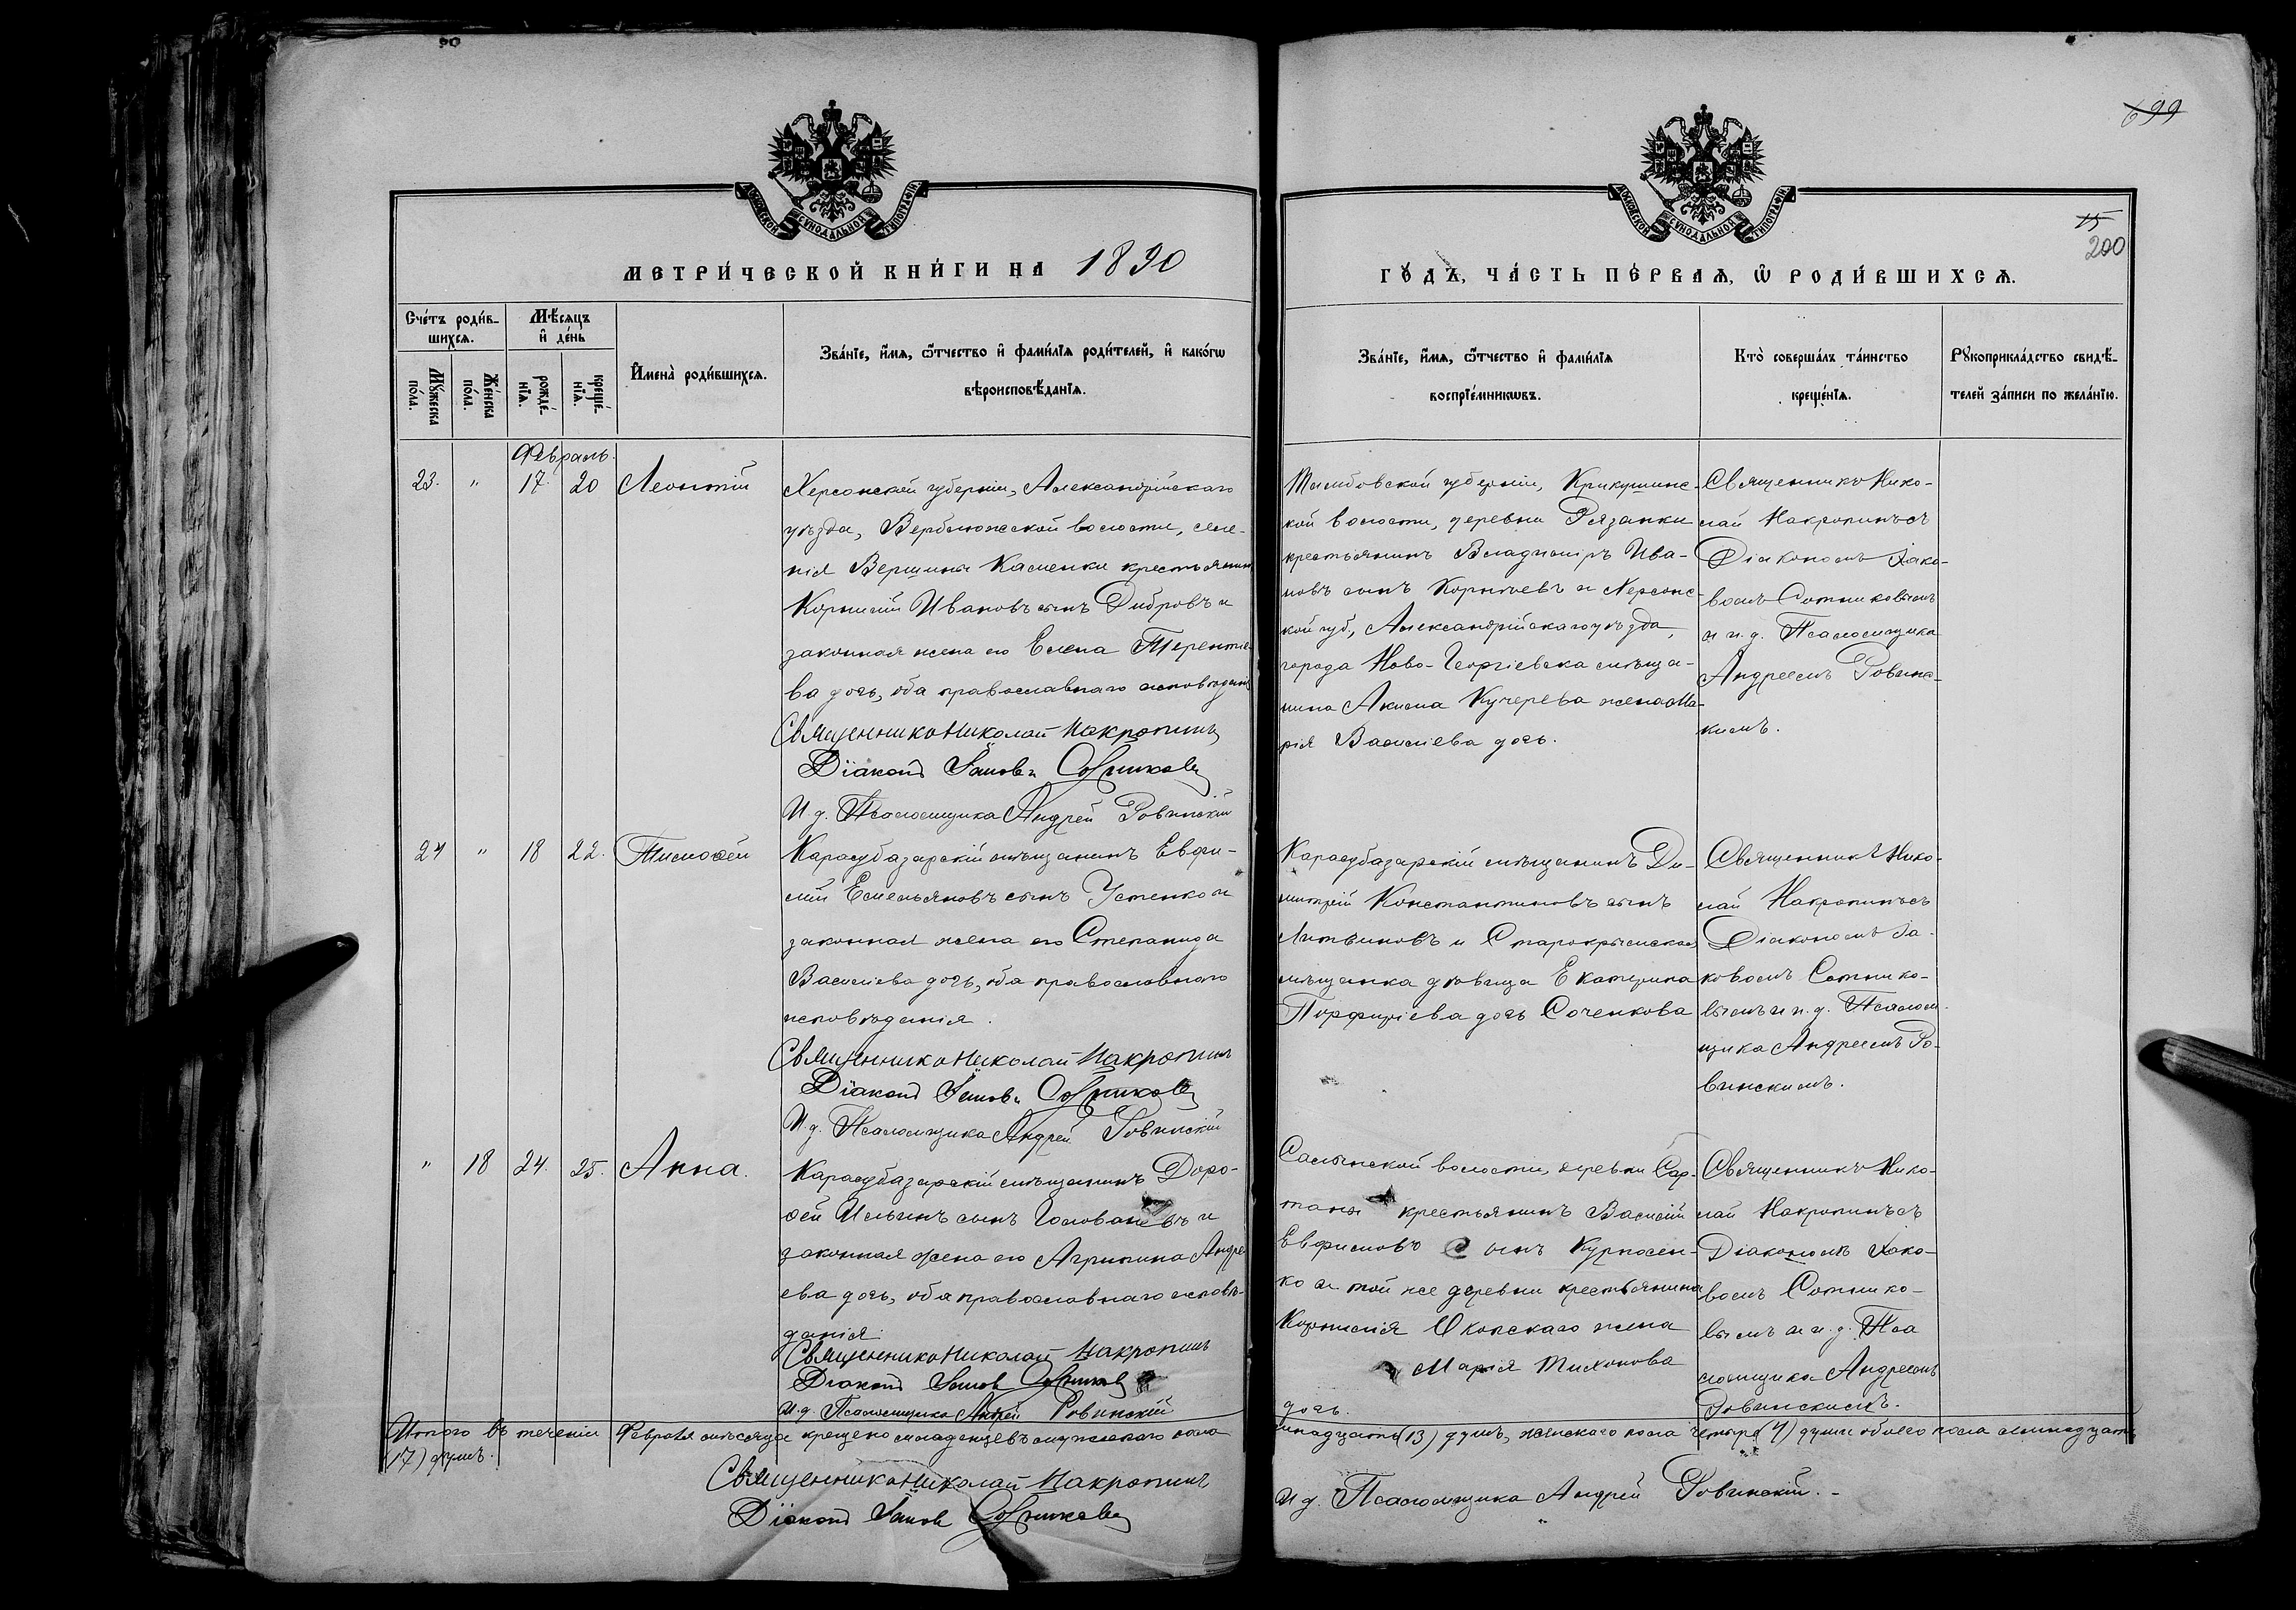 699
15
200
МОСКОВСКОЙ СѴНОДАЛЬНОЙ ТИПОГРАФІИ
МОСКОВСКОЙ СѴНОДАЛЬНОЙ ТИПОГРАФІИ
МЕТРИ́ЧЕСКОЙ КНИ́ГИ НА 1890
ГО́ДЪ, ЧА́СТЬ ПЕ́РВАЯ, Ѽ РОДИ́ВШИХСЯ.
Сче́тъ роди́в-
шихся.
Му́жеска
по́ла.
Же́нска
по́ла.
Мѣ́сяцъ
и де́нь
рожде́-
нїя.
креще́-
нїя.
Имена̀ роди́вшихся.
Зва́нїе, и́мя, ѻ́тчество и фами́лїя роди́телей, и како́гѡ
вѣроисповѣ́данїя.
Зва́нїе, и́мя, ѻ́тчество и фами́лїя
воспрїе́мникѡвъ.
Кто̀ соверша́лъ та́инство
креще́нїя.
Рꙋкоприкла́дство свидѣ́-
телей за́писи по жела́нїю.
Февраль.
23.
"
17.
20
Леонтій
Херсонской губерніи, Александрійскаго
уѣзда, Верблюжской волости, селе-
нія Вершина Каменки крестьянинъ
Корнилій Ивановъ сынъ Дибровъ и
законная жена его Елена Терентіе-
ва дочь, оба православнаго исповѣданія
Священникъ Николай Макропинъ
Діаконъ Іаковъ Сотниковъ
И. д. Псаломщика Андрей Ровинскій
Тамбовской губерніи, Крикушинс-
кой волости, деревни Рязанки
крестьянинъ Владиміръ Ива-
новъ сынъ Корнѣевъ и Херсонс-
кой губ, Александрійскаго уѣзда,
города Ново-Георгіевска мѣща-
нина Акима Кучерева жена Ма-
рія Василіева дочь.
Священникъ Нико-
лай Макропинъ съ
Діакономъ Іако-
вомъ Сотниковымъ
и и. д. Псаломщика
Андреемъ Ровинс-
кимъ.
24
"
18
22.
Тимоѳей
Карасубазарскій мѣщанинъ Евфи-
мій Емельяновъ сынъ Устенко и
законная жена его Степанида
Василіева дочь, оба православнаго
исповѣданія.
Священникъ Николай Макропинъ
Діаконъ Іаковъ Сотниковъ
И. д. Псаломщика Андрей Ровинскій
Карасубазарскій мѣщанинъ Ди-
митрій Константиновъ сынъ
Литвиновъ и Старокрымская
мѣщанка дѣвица Екатерина
Порфиріева дочь Соченкова
Священникъ Нико-
лай Макропинъ съ
Діакономъ Іа-
ковомъ Сотнико-
вымъ и и. д. Псалом-
щика Андреемъ Ро-
винскимъ.
"
18
24.
25.
Анна.
Карасубазарскій мѣщанинъ Доро-
ѳей Ильинъ сынъ Головачевъ и
законная жена его Агрипина Андре-
ева дочь, оба православнаго исповѣ-
данія.
Священникъ Николай Макропинъ
Діаконъ Іаковъ Сотниковъ
И. д. Псаломщика Андрей Ровинскій
Салынской волости, деревни Сар-
тана крестьянинъ Василій
Евфимовъ сынъ Курносен-
ко и той же деревни крестьянина
Корнилія Оконскаго жена
Марія Тихонова
дочь.
Священникъ Нико-
лай Макропинъ съ
Діакономъ Іако-
вомъ Сотнико-
вымъ и и. д. Пса
ломщика Андреемъ
Ровинскимъ.
Итого въ теченіи Февраля мѣсяца крещено младенцевъ мужескаго пола
инадцать (13) душъ, женскаго пола четыре (4) души обоего пола семнадцать
(17) душъ.
Священникъ Николай Макропинъ
Діаконъ Іаковъ Сотниковъ
И д. Псаломщика Андрей Ровинскій.